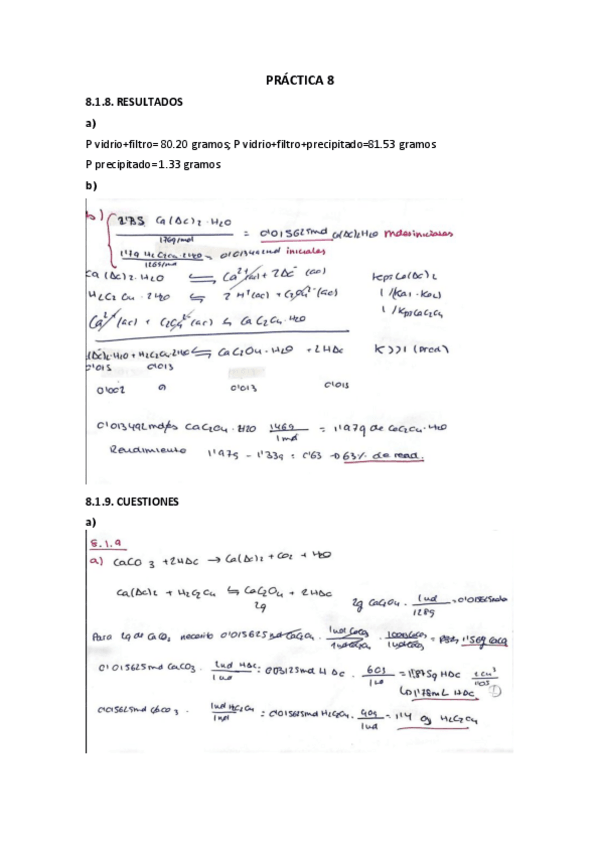 PRÁCTICA 8
8.1.8. RESULTADOS
a)
P vidrio+filtro= 80.20 gramos; P vidrio+filtro+precipitado=81.53 gramos
P precipitado= 1.33 gramos
b)
b)
Ca(Ac)2·H2O = 0'015625mol Ca(Ac)2H2O moles iniciales
176g/mol
iniciales
Ca(Ac)2·H2O ⇌ Ca²⁺(ac) + 2Ac⁻(ac) KpsCa(Ac)2
H2C2O4·2H2O ⇌ 2H⁺(ac) + C2O4²⁻(ac)
Ca²⁺(ac) + C2O4²⁻(ac) ⇌ CaC2O4·H2O 1/KpsCaC2O4
+ H2C2O4·2H2O ⇌ CaC2O4·H2O + 2HAc K>>1 (Prod)
0'015 0'013
0'002 0 0'013
0'013492 moles CaC2O4·H2O 146g/1mol = 1'97g de CaC2O4·H2O
Rendimiento 1'97g - 1'33g = 0'63 → 63% de rend.
8.1.9. CUESTIONES
a)
8.1.9
a) CaCO3 + 2HAc → Ca(Ac)2 + CO2 + H2O
Ca(Ac)2 + H2C2O4 ⇌ CaC2O4 + 2HAc
2g 2g CaC2O4 · 1mol/128g = 0'015625mol
Para 2g de necesito 0'015625
0'015625mol CaCO3 · = 0'03125mol HAc · 60g = 1'875g HAc
1'78mL HAc
0'015625mol CaCO3 · 1mol H2C2O4/1mol = 0'015625mol H2C2O4 · 90g/1mol = 1'4 g H2C2O4